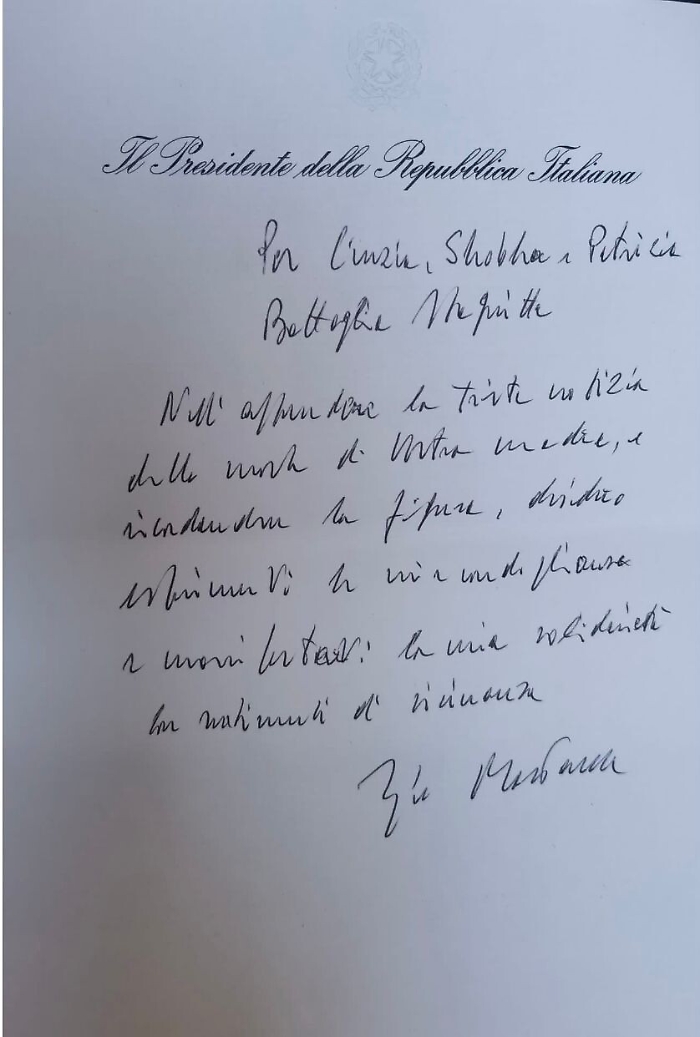 Il Presidente della Repubblica Italiana
Per Cinzia, Shobha e Patricia
Battaglia Stagnitta
Nell'apprendere la triste notizia
della morte di Vostra madre, e
ricordandone la figura, desidero
esprimerVi le mie condoglianze
e manifestarVi la mia solidarietà
con sentimenti di vicinanza
Sergio Mattarella